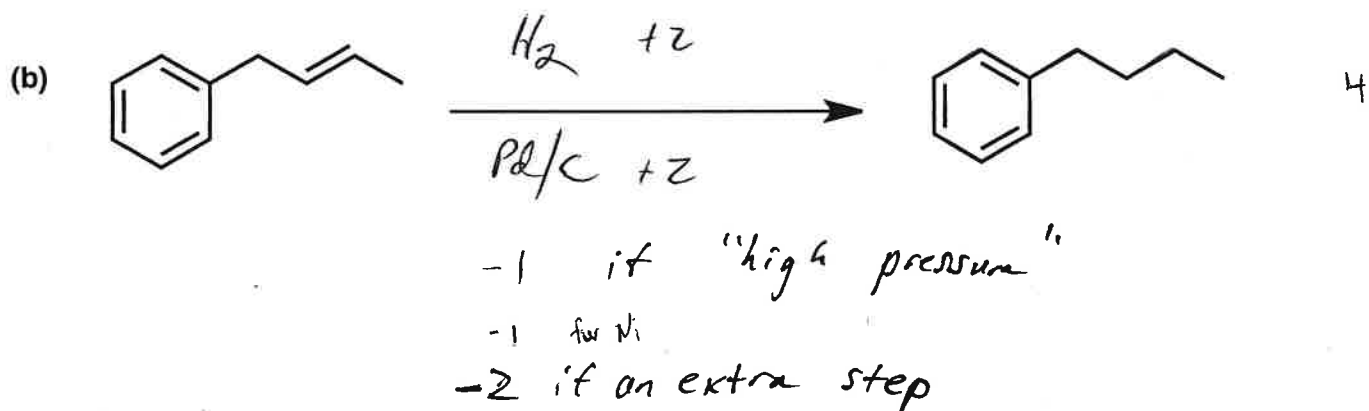 (b)
H2 +2
4
Pd/C +2
-1 if "high pressure"
-1 for Ni
-2 if an extra step